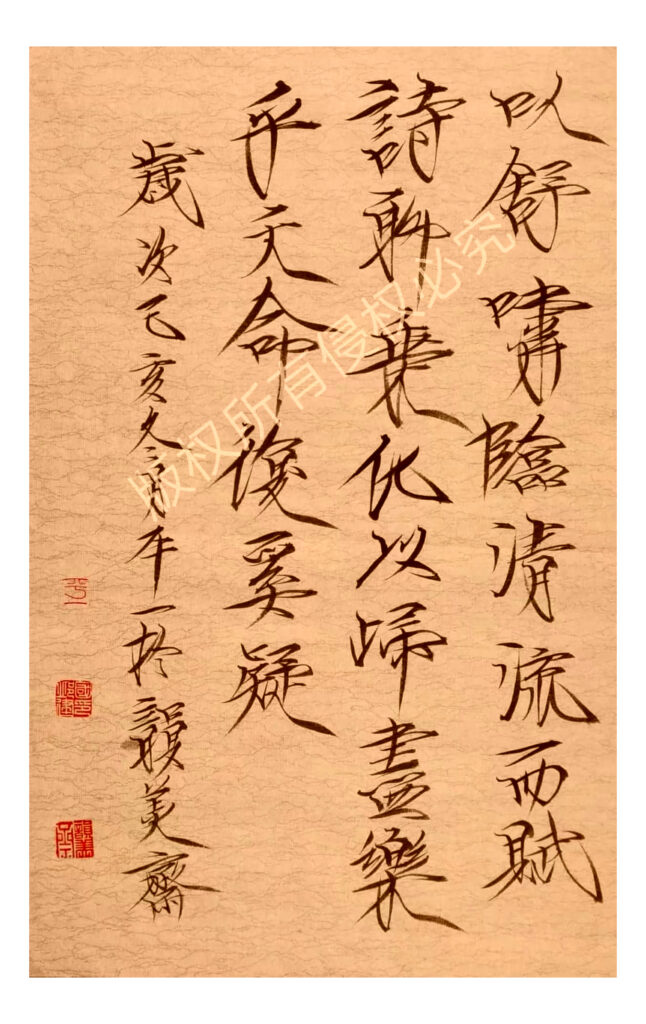 以舒嘯臨清流而賦
詩聊乘化以歸盡樂
乎天命復奚疑
歲次己亥冬月平一於美齋
平一
版权所有侵权必究